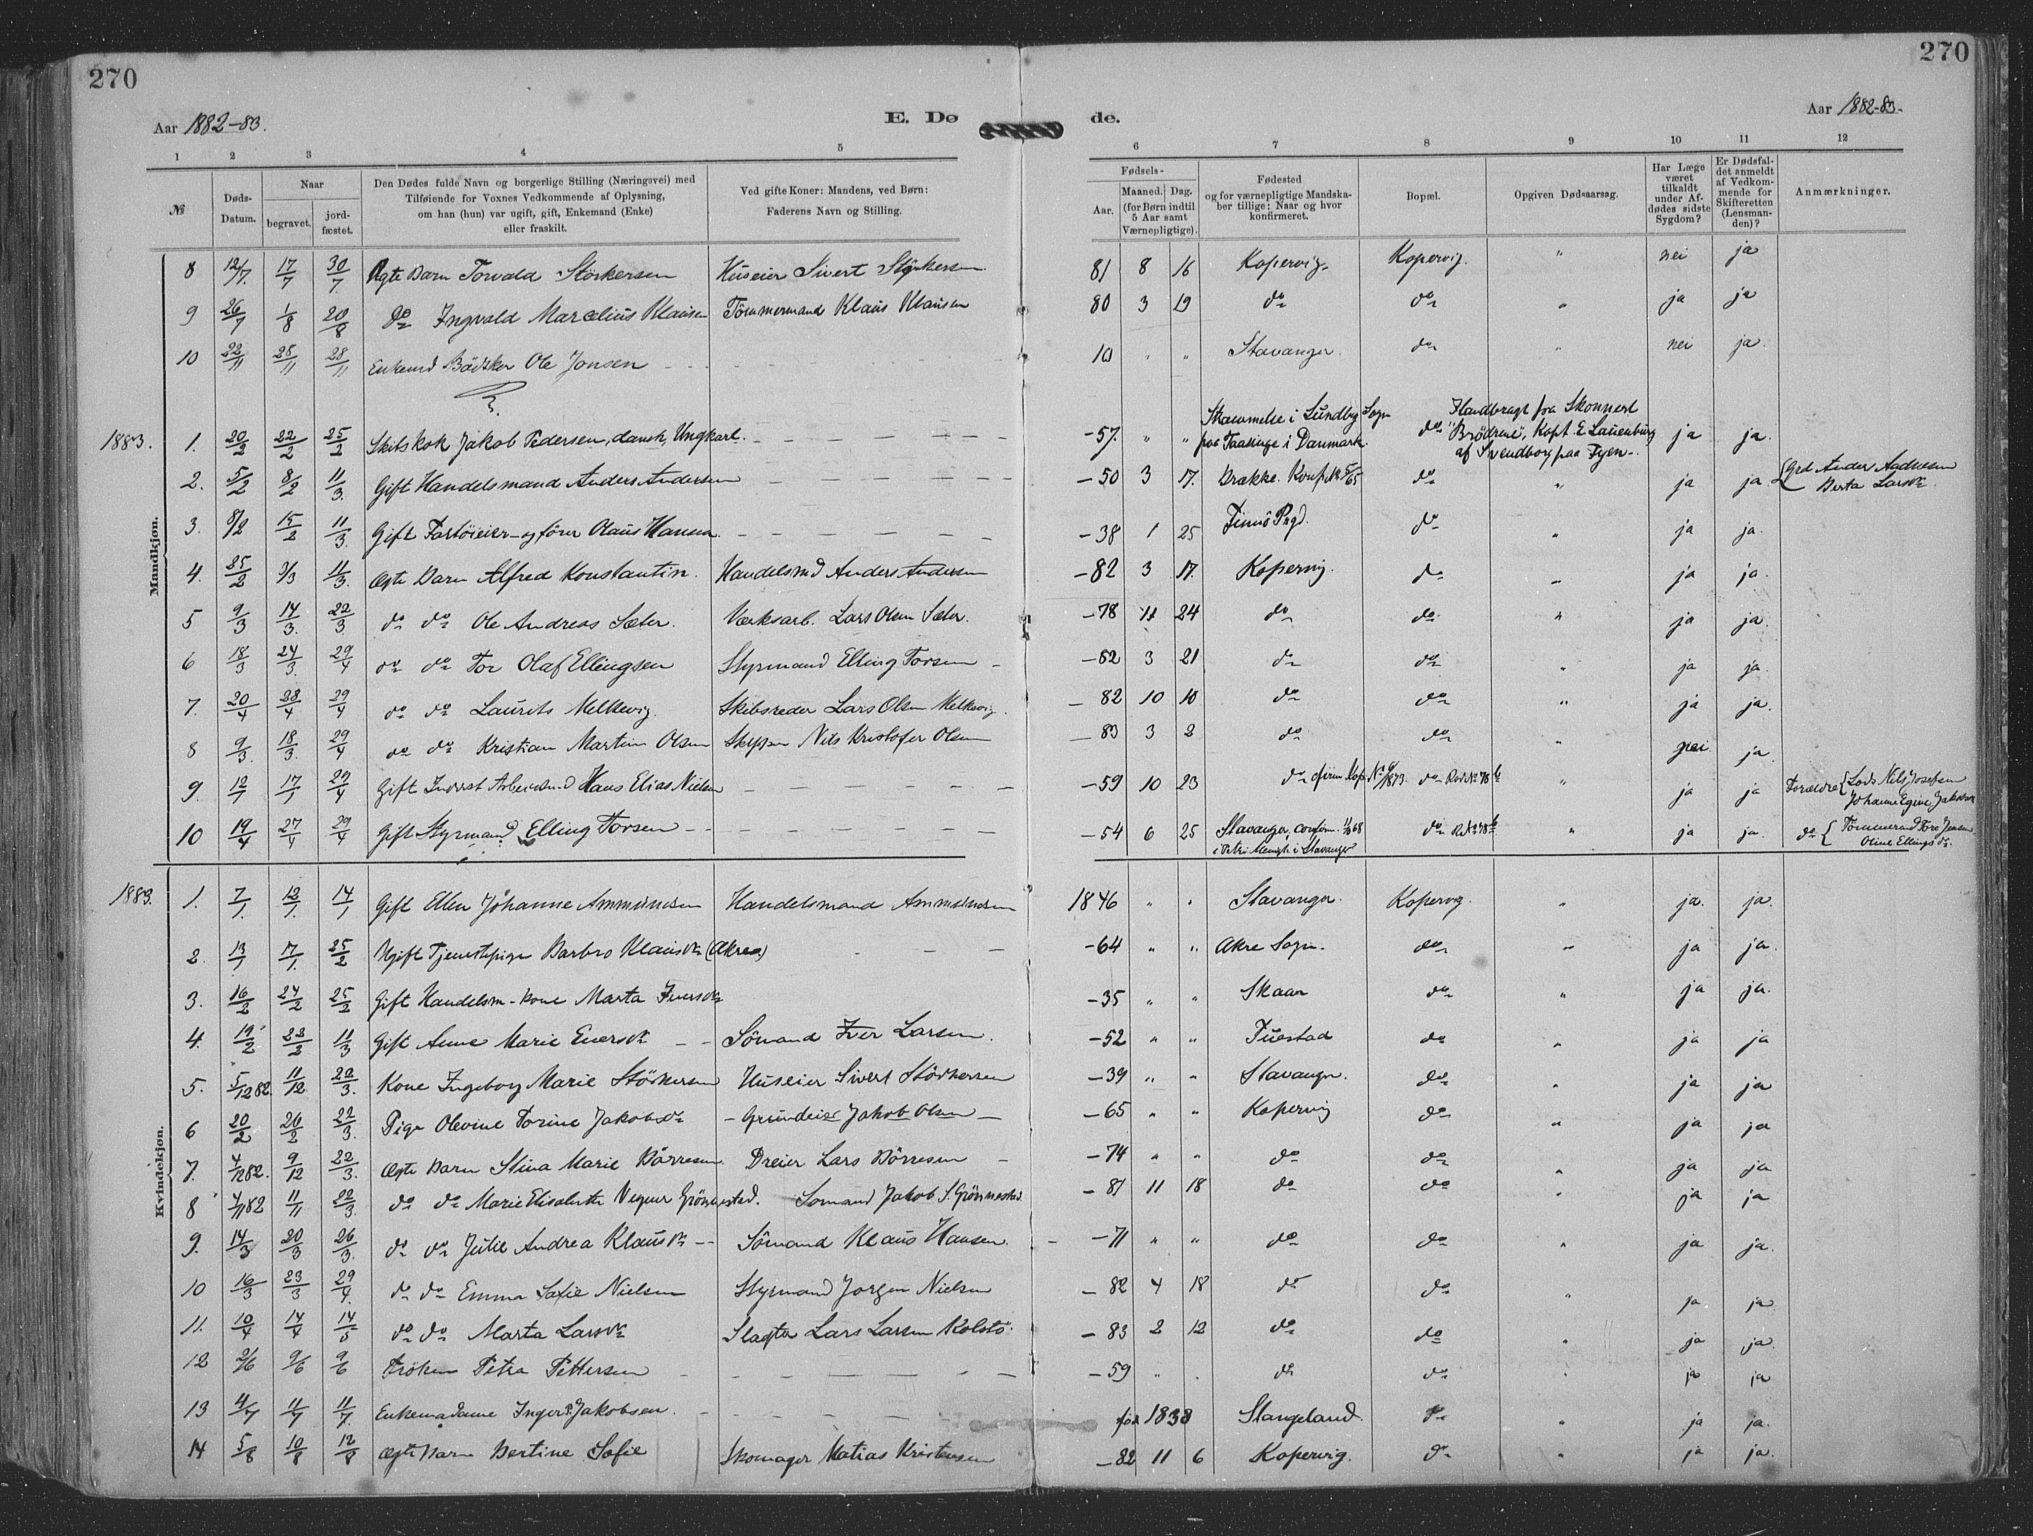 270
270
Aar 1882-83.
E. Dø
de.
Aar 1882-83.
1 2 3 4 5 6 7 8 9 10 11 12
№
Døds-Datum.
Naar
begravet.
jord-fæstet.
Den Dødes fulde Navn og borgerlige Stilling (Næringsvei) med
Tilføiende for Voxnes Vedkommende af Oplysning,
om han (hun) var ugift, gift, Enkemand (Enke)
eller fraskilt.
Ved gifte Koner: Mandens, ved Børn:
Faderens Navn og Stilling.
Fødsels-
Aar.
Maaned. Dag.
(for Børn indtil
5 Aar samt
Værnepligtige).
Fødested
og for værnepligtige Mandska-
ber tillige: Naar og hvor
konfirmeret.
Bopæl.
Opgiven Dødsaarsag.
Har Læge
været
tilkaldt
under Af-
dødes sidste
Sygdom?
Er Dødsfal-
det anmeldt
af Vedkom-
mende for
Skifteretten
(Lensman-
den)?
Anmærkninger.
Mandkjøn.
8 12/7 17/7 30/7 Ægte Barn Torvald Störkersen Huseier Sivert Störkersen 81 8 16 Kopervig. Kopervig. " nei ja
9 26/7 1/8 20/8 do Ingvald Marcelius Klausen Tömmermand Klaus Klausen 80 3 19 do do " ja ja
10 22/11 25/11 28/11 Enkemd Bödker Ole Jonsen 10 " " Stavanger. do nei ja.
1883. 1. 20/2 22/2 25/2 Skibskok Jakob Pedersen, dansk, Ungkarl. -57. " " Skammelse i Lundby Sogn paa Taasinge i Danmark. do Ilandbragt fra Skonnert "Brödrene", Kapt. E Lauenburg af Svendborg paa Fyen. ja ja.
2. 5/2 8/2 11/3. Gift Handelsmand Anders Andersen -50 3 17. Brakke. do " ja ja. Anders Berta
3. 8/2 15/2 11/3. Gift Fartöieier og förer Olaus Hansen -38 1 25 Finnö Pgd. do " ja ja.
4. 25/2 2/3 11/3. Ægte Barn Alfred Konstantin. Handelsmd Anders Andersen -82 3 17. Kopervig. do " ja ja.
5 9/3 14/3. 22/3 do do Ole Andreas Sæter. Værksarb. Lars Olsen Sæter. -78 11 24 do do " ja ja.
6 18/3 24/3. 29/4 do do Tor Olaf Ellingsen Styrmand Elling Torsen -82 3 21 do do " ja ja.
7. 20/4 28/4 29/4 do do Laurits Melkevig. Skibsreder Lars Olsen Melkevig. -82 10 10 do do " ja ja.
8 9/3. 18/3. 29/4 do do Kristian Martin Olsen Skipper Nils Kristofer Olsen -83 3 2 do do " nei ja.
9. 12/1 17/1 29/4 Gift Arbeidsmd Hans Elias Nielsen -59 10 23 do 1873. do " ja ja Forældre { Lods Nils Josefsen Johanne Jakobsd
10 19/4 27/4 29/4 Gift Styrmand Elling Torsen -54 6 25 Stavanger, confirm. i Petri Menigh. i Stavanger do " ja ja. do { Tömmermand Tore Jensen Oline Ellingsd.
Kvindekjøn.
1883. 1. 7/1. 13/1. 14/1 Gift Ellen Johanne Ammundsen Handelsmand Ammundsen 1846 " " Stavanger. Kopervig. " ja. ja.
2. 13/1 17/1. 25/2 Ugift Tjenestepige Barbro Klausdtr (Akrea) -64 " " Akre Sogn. do " ja ja.
3. 16/2 24/2 25/2 Gift Handelsm-kone Marta Iversdtr -35 " " Skaar do " ja ja.
4. 19/2 23/2 11/3 Gift Anne Marie Eversdtr Sömand Iver Larsen. -52 " " Tuestad do " ja ja
5. 5/12 82. 11/12. 22/3. Kone Ingeborg Marie Störkersen Huseier Sivert Störkersen -39 " " Stavanger. do " ja ja
6 20/2 26/2 22/3. Pige Olevine Torine Jakobsdtr Grundeier Jakob Olsen -65 " " Kopervig do " ja ja
7. 4/12 82. 9/12 22/3. Ægte Barn Stina Marie Börresen Dreier Lars Börresen -74 " " do do " ja ja
8 4/11 82 11/11 22/3. do do Marie Elisabeth Grönnestad. Sömand Jakob S. Grönnestad -81 11 18 do do " ja ja
9. 14/3 20/3 26/3. do do Julie Andrea Klausdtr Sömand Klaus Hansen. -71 " " do do " ja ja.
10 16/3 23/3 29/4. do do Emma Sofie Nielsen Styrmand Jörgen Nielsen -82 4 18 do do " ja ja
11. 10/4 14/4 14/5 do do Marta Larsdtr Slagter Lars Larsen Kolstö. -83 2 12 do do " ja ja.
12 2/6 9/6 9/6 Fröken Petra Pettersen -59 " " do do " ja ja
13 4/7 11/7 11/7. Enkemadame Inger Jakobsen. för 1838 Stangeland. do " ja ja.
14 5/8 10/8 12/8 Ægte Barn Bertine Sofie Skomager Matias Kristensen -82 11 6 Kopervig. do " ja ja.